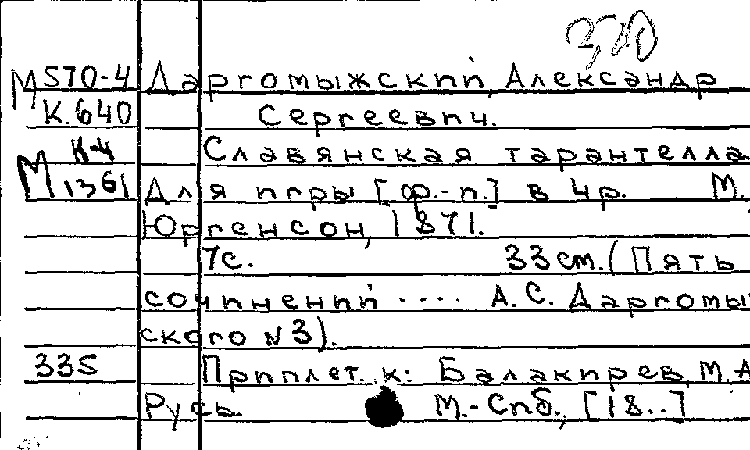 3,50
М 570-4 Даргомыжский, Александр
К.640 Сергеевич.
К-4 Славянская тарантелла
М 1361 Для игры [ф.-п.] в 4 р. М.
Юргенсон, 1871.
7с. 33 см. (Пять
сочинений .... А.С. Даргомы
ского №3).
335 Приплет. к: Балакирев, М.А
Русь. М.-Спб., [18..]